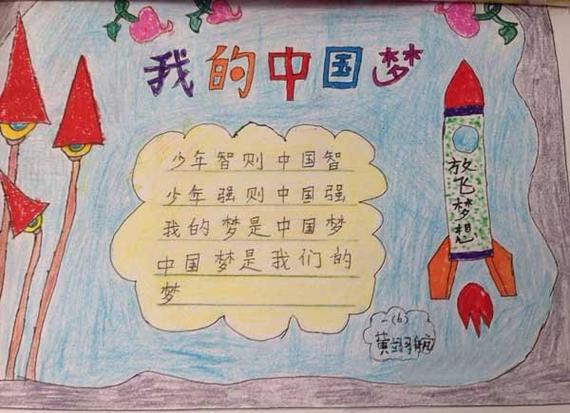 我的中国梦
少年智则中国智
少年强则中国强
我的梦是中国梦
中国梦是我们的
梦
放飞梦想
一(6)
黄羽航